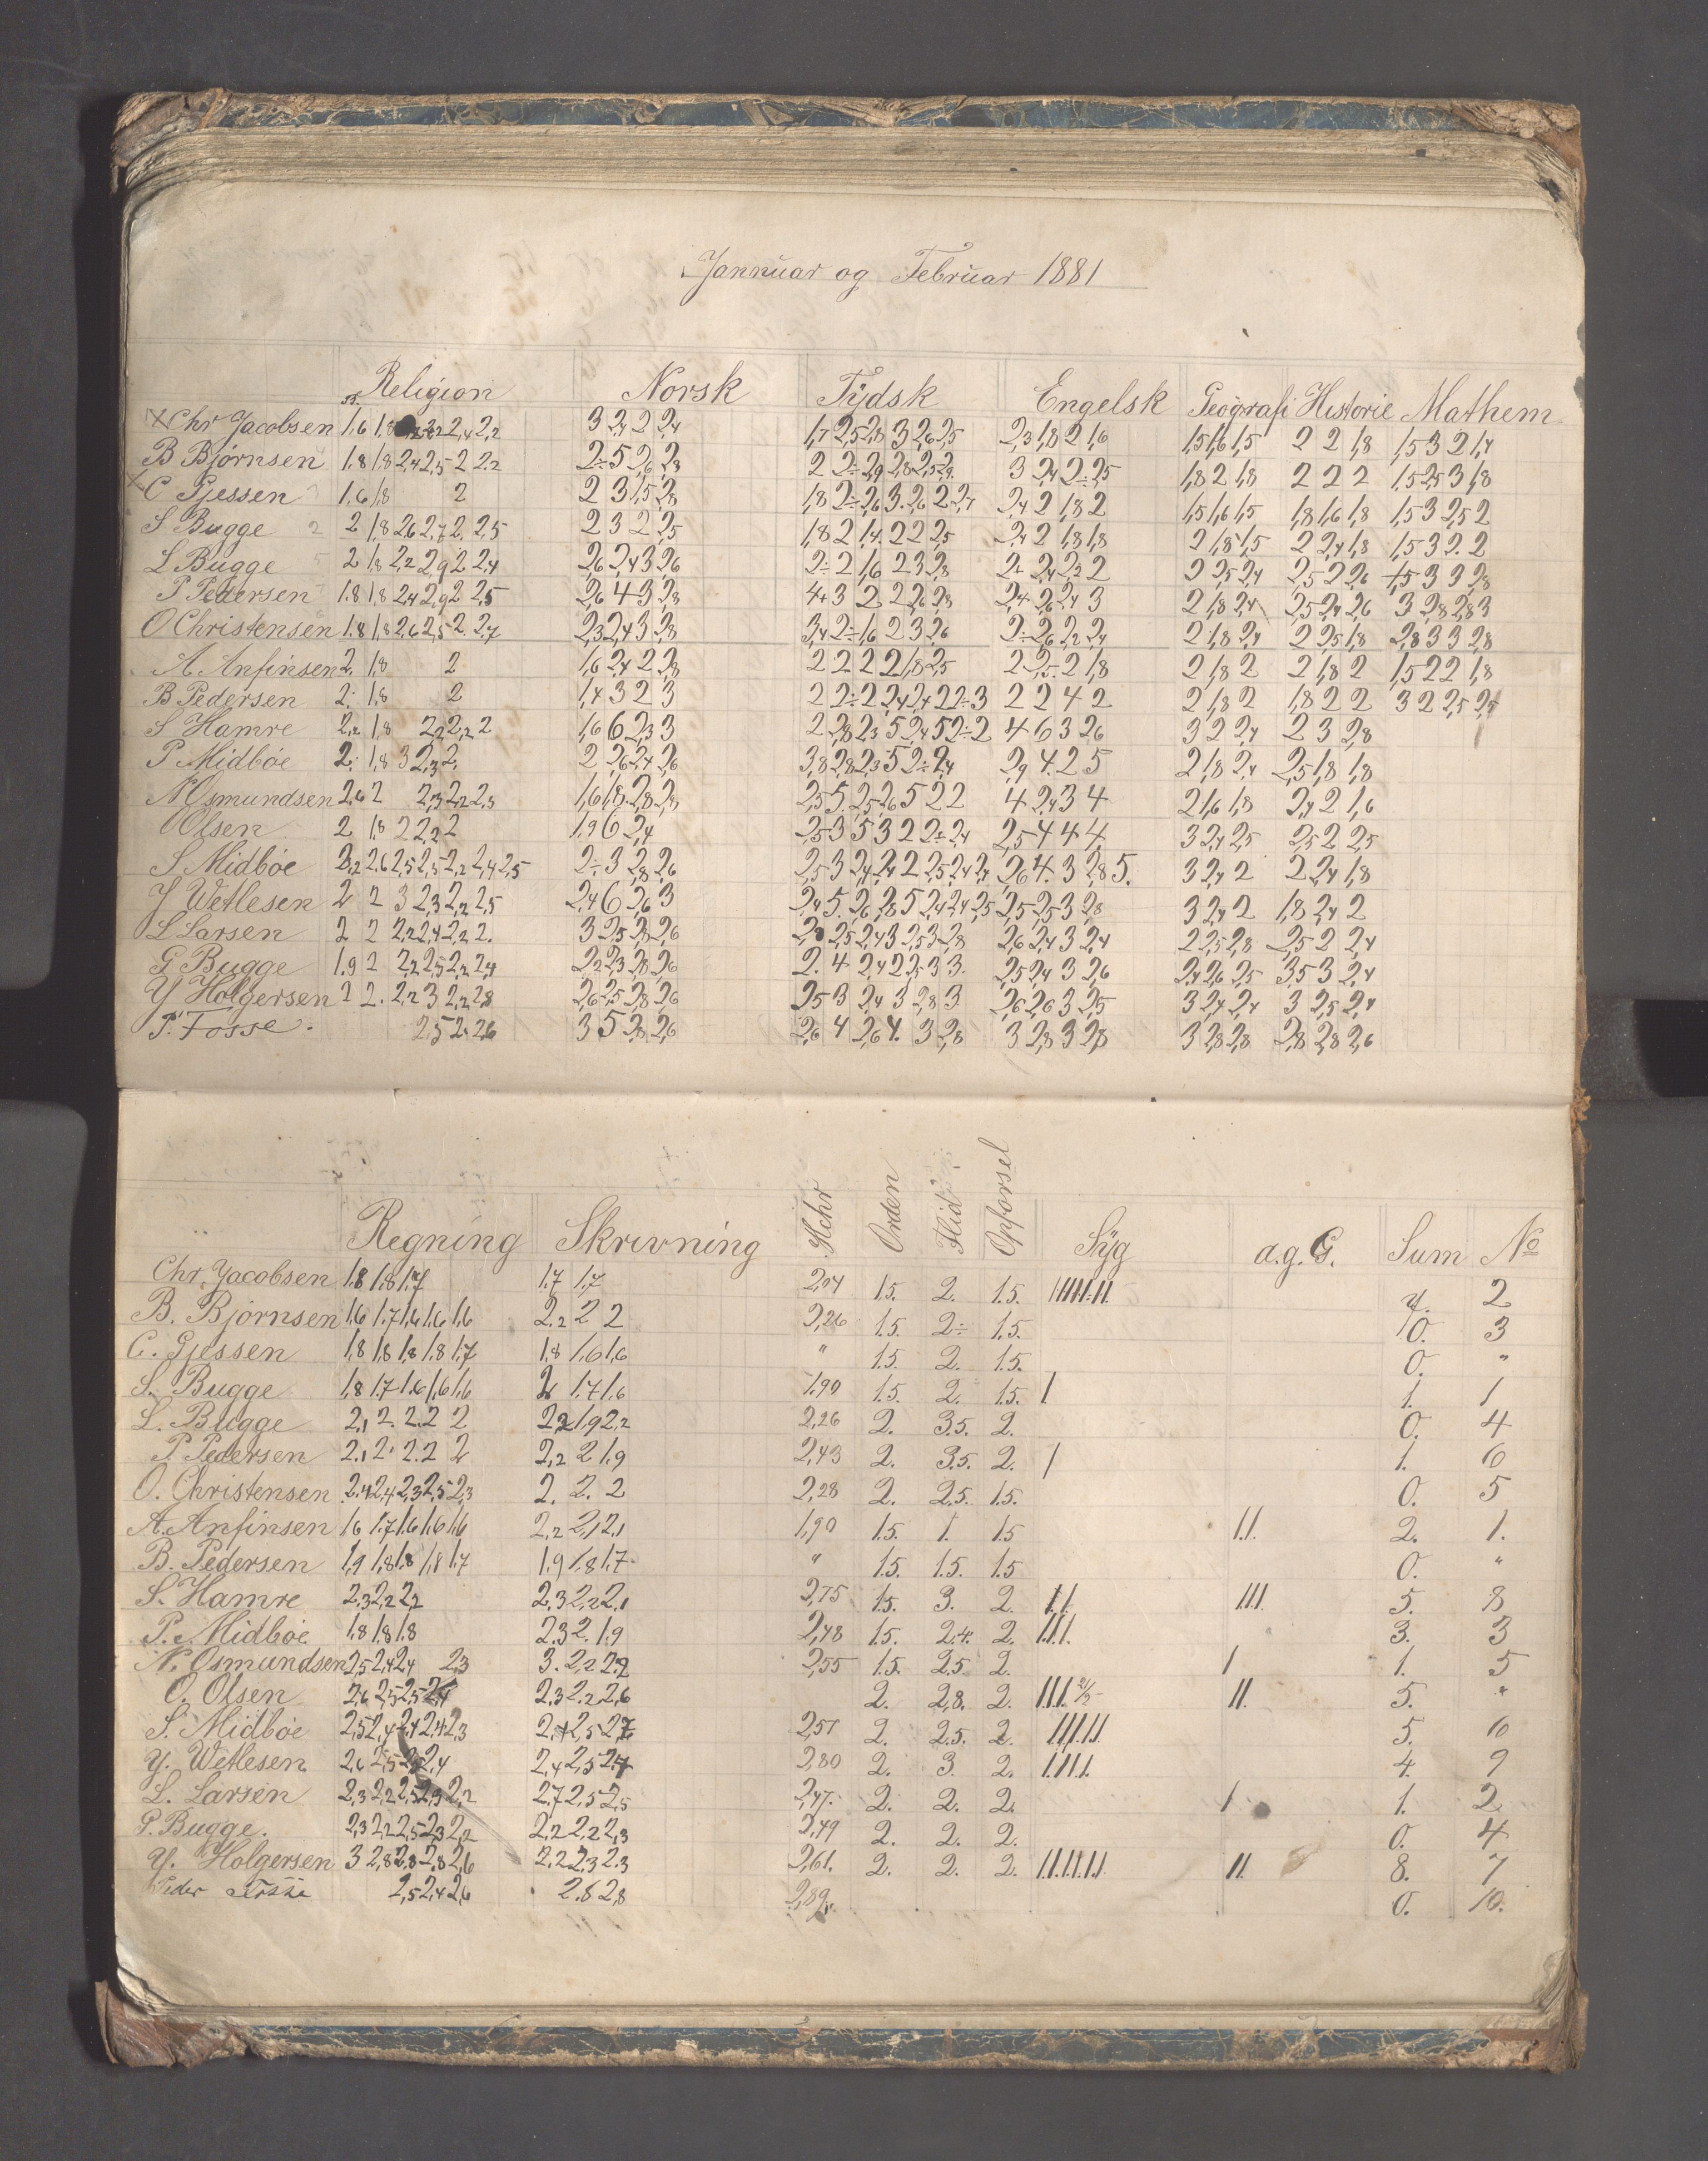 Jannuar og Februar 1881
Religion Norsk Tydsk Engelsk Geografi Historie Mathem
Chr Jacobsen 1,6 1,8 2,4 2,2 3 2,4 2 2,4 1,7 2,5 2,8 3 2,6 2,5 2,3 1,8 2 1,6 1,5 1,6 1,5 2 2 1,8 1,5 3 2 1,4
B Bjørnsen 1,8 1,8 2,4 2,5 2 2,2 2÷ 5 2,6 2,8 2 2÷ 2,9 2,8 2,5 2,9 3 2,4 2÷ 2,5 1,8 2 1,8 2 2 2 1,5 2,5 3 1,8
C Gjessen 1,6 1,8 2 2 3 2,5 2,8 1,8 2÷ 2,6 3. 2,6 2 2,7 2,4 2 1,8 2 1,5 1,6 1,5 1,8 1,6 1,8 1,5 3 2,5 2
S Bugge 2 1,8 2,6 2,7 2. 2,5 2 3 2 2,5 1,8 2 1,4 2 2 2,5 2,4 2 1,8 1,8 2 1,8 1,5 2 2,4 1,8 1,5 3 2. 2
L Bugge 2 1,8 2,2 2,9 2 2,4 2,6 2,4 3 2,6 2÷ 2 1,6 2 3 2,8 2÷ 2,4 2,2 2 2 2,5 2,4 2,5 2 2,6 +,5 3 3 2,8
P Pedersen 1,8 1,8 2,4 2,9 2 2,5 2,6 4 3 2,8 4+ 3 2 2 2,6 2,8 2,4 2,6 2,4 3 2 1,8 2,4 2,5 2,4 2,6 3 2,8 2,8 3
O Christensen 1,8 1,8 2,6 2,5 2. 2,7 2,3 2,4 3 2,8 3,4 2÷ 1,6 2 3 2,6 2÷ 2,6 2,2 2,4 2 1,8 2,4 2 2,5 1,8 2,8 3 3 2,8
A. Anfinsen 2. 1,8 2 1,6 2,4 2 2,8 2 2 2 2 1,8 2,5 2 2,5. 2 1,8 2 1,8 2 2 1,8 2 1,5 2 2 1,8
B Pedersen 2. 1,8 2 1,4 3 2 3 2 2÷ 2 2,4 2,4 2 2÷ 3 2 2 4 2 2 1,8 2 1,8 2 2 3 2 2,5 2,5
S Hamre 2,2 1,8 2,2 2,2 2 1,6 6 2,3 3 2 2,8 2,3 5 2,4 5 2÷ 2 4 6 3 2,6 3 2 2,4 2 3 2,8
P Midbøe 2. 1,8 3 2,3 2. 2 2,6 2,4 2,6 3,8 2,8 2,3 5 2÷ 2,4 2,9 4. 2 5 2 1,8 2,4 2,5 1,8 1,8
N Osmundsen 2,6 2 2,3 2,2 2,3 1,6 1,8 2,8 2,8 2,5 5 2,5 2,6 5 2 2 4 2,4 3 4 2 1,6 1,8 2,4 2 1,6
O Olsen 2 1,8 2 2,2 2 1,9 6 2,4 2,5 3 5 3 2 2÷ 2,4 2,5 4 4 4 3 2,4 2,5 2,5 2 2,5
S Midbøe 2,2 2,6 2,5 2,5 2,2 2,4 2,5 2÷ 3 2,8 2,6 2,5 3 2,4 2,4 2 2,5 2,4 2,4 2,6 4. 3 2,8 5. 3 2,4 2 2 2,4 1,8
Y Wetlesen 2 2 3 2,3 2,2 2,5 2,4 6 2,6 3 2,4 5. 2,6 2,8 5 2,4 2,4 2,5 2,5 2,5 3 2,8 3 2,4 2 1,8 2,4 2
L Larsen 2 2 2,2 2,4 2,2 2. 3 2,5 2,8 2,6 2,5 2,4 3 2,5 3 2,8 2,6 2,4 3 2,4 2 2,5 2,8 2,5 2 2,4
G Bugge 1,9 2 2,2 2,5 2,2 2,4 2,2 2,3 2,8 2,6 2. 4 2,4 2 2,5 3 3. 2,5 2,4 3 2,6 2,4 2,6 2,5 3,5 3 2,4
Y Holgersen 2 2. 2,2 3 2,2 2,8 2,6 2,5 2,8 2,6 2,5 3 2,4 3 2,8 3 2,6 2,6 3 2,5 3 2,4 2,4 3 2,5 2,4
P. Fosse. 2,5 2. 2,6 3 5 2,8 2,6 2,6 4 2,6 4. 3 2,8 3 2,8 3 2,8 3 2,8 2,8 2,8 2,8 2,6
Regning Skrivning Hchr Orden Flid Opførsel Syg a.g.G. Sum No
Chr. Jacobsen 1,8 1,8 1,7 1,7 1,7 2,04 1.5. 2. 1.5. 7. 2
B. Bjørnsen 1,6 1,7 1,6 1,6 1,6 2,2 2 2 2,26 1.5. 2÷ 1.5. 0. 3
C. Gjessen 1,8 1,8 1,8 1,8 1,7 1,8 1,6 1,6 " 1.5. 2. 1.5. 0. "
S. Bugge 1,8 1,7 1,6 1,6 1,6 2 1,7 1,6 1,90 1.5. 2. 1.5. / 1. 1
L. Bugge 2,1 2. 2. 2 2 2,2 1,9 2,2 2,26 2. 3.5. 2. 0. 4
P Pedersen 2,1 2. 2. 2 2 2,2 2 1,9 2,43 2. 3.5. 2. / 1. 6
O. Christensen 2,4 2,4 2,3 2,5 2,3 2. 2. 2 2,28 2. 2.5. 1.5. 0. 5
A. Anfinsen 1,6 1,7 1,6 1,6 1,6 2,2 2,1 2,1 1,90 1.5. 1. 1.5 11. 2. 1.
B. Pedersen 1,9 1,8 1,8 1,8 1,7 1,9 1,8 1,7 " 1.5. 1.5. 1.5 0. "
S. Hamre 2,3 2,2 2,2 2,3 2,2 2,1 2,75 1.5. 3. 2. 11. 111. 5. 8
P. Midbøe 1,8 1,8 1,8 2,3 2. 1,9 2,48 1.5. 2.4. 2. 111. 3. 3
N. Osmundsen 2,5 2,4 2,4 2,3 3. 2,2 2,2 2,55 1.5. 2.5. 2. 1 1. 5
O. Olsen 2,6 2,5 2,5 2,4 2,3 2,2 2,6 2. 2,8. 2. 111. 11. 5. "
S. Midbøe 2,5 2,4 2,4 2,4 2,3 2,4 2,5 2,7 2,57 2. 2.5. 2. 11111. 5. 6
Y. Wetlesen 2,6 2,5 2,5 2,4 2,4 2,5 2,4 2,80 2. 3. 2. 1111. 4. 9
L. Larsen 2,3 2,2 2,5 2,3 2,2 2,7 2,5 2,5 2,47. 2. 2. 2. 1 1. 2
G. Bugge. 2,3 2,2 2,5 2,3 2,2 2,2 2,2 2,3 2,49 2. 2. 2. 0. 4
Y. Holgersen 3 2,8 2,8 2,8 2,6 2,2 2,3 2,3 2,61. 2. 2. 2. 111111 11. 8. 7
Peder Fosse 2,5 2,4 2,6 2,8 2,8 2,89. 0. 10.